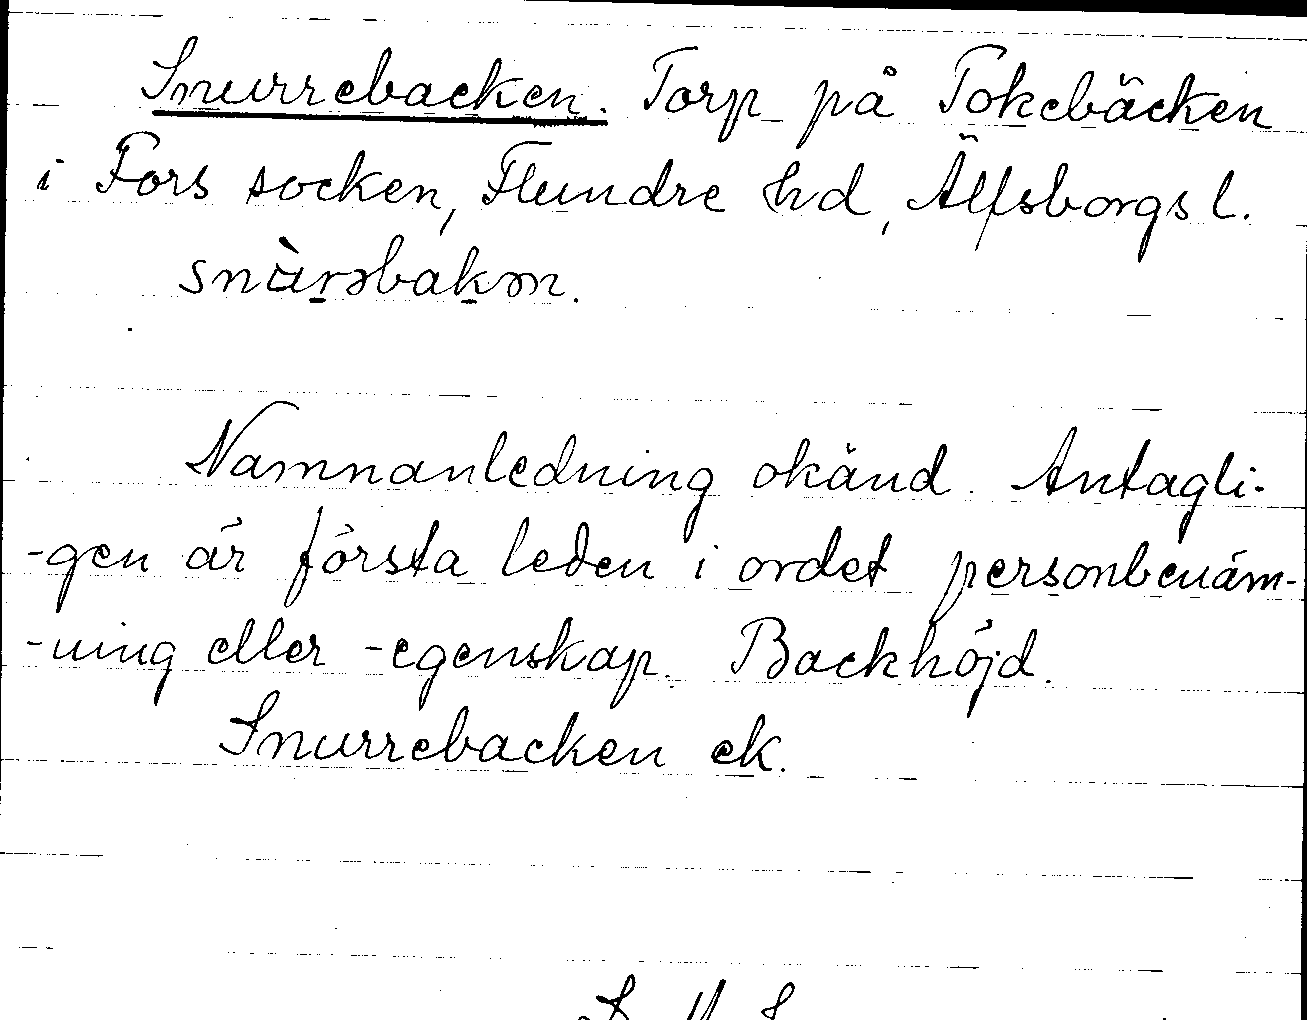 Snurrebacken. Torp på Tokebäcken
i Fors socken, Flundre hd, Älfsborgs l.
snùrəbakən.
Namnanledning okänd. Antagli-
-gen är första leden i ordet personbenäm-
-ning eller -egenskap. Backhöjd.
Snurrebacken ek.